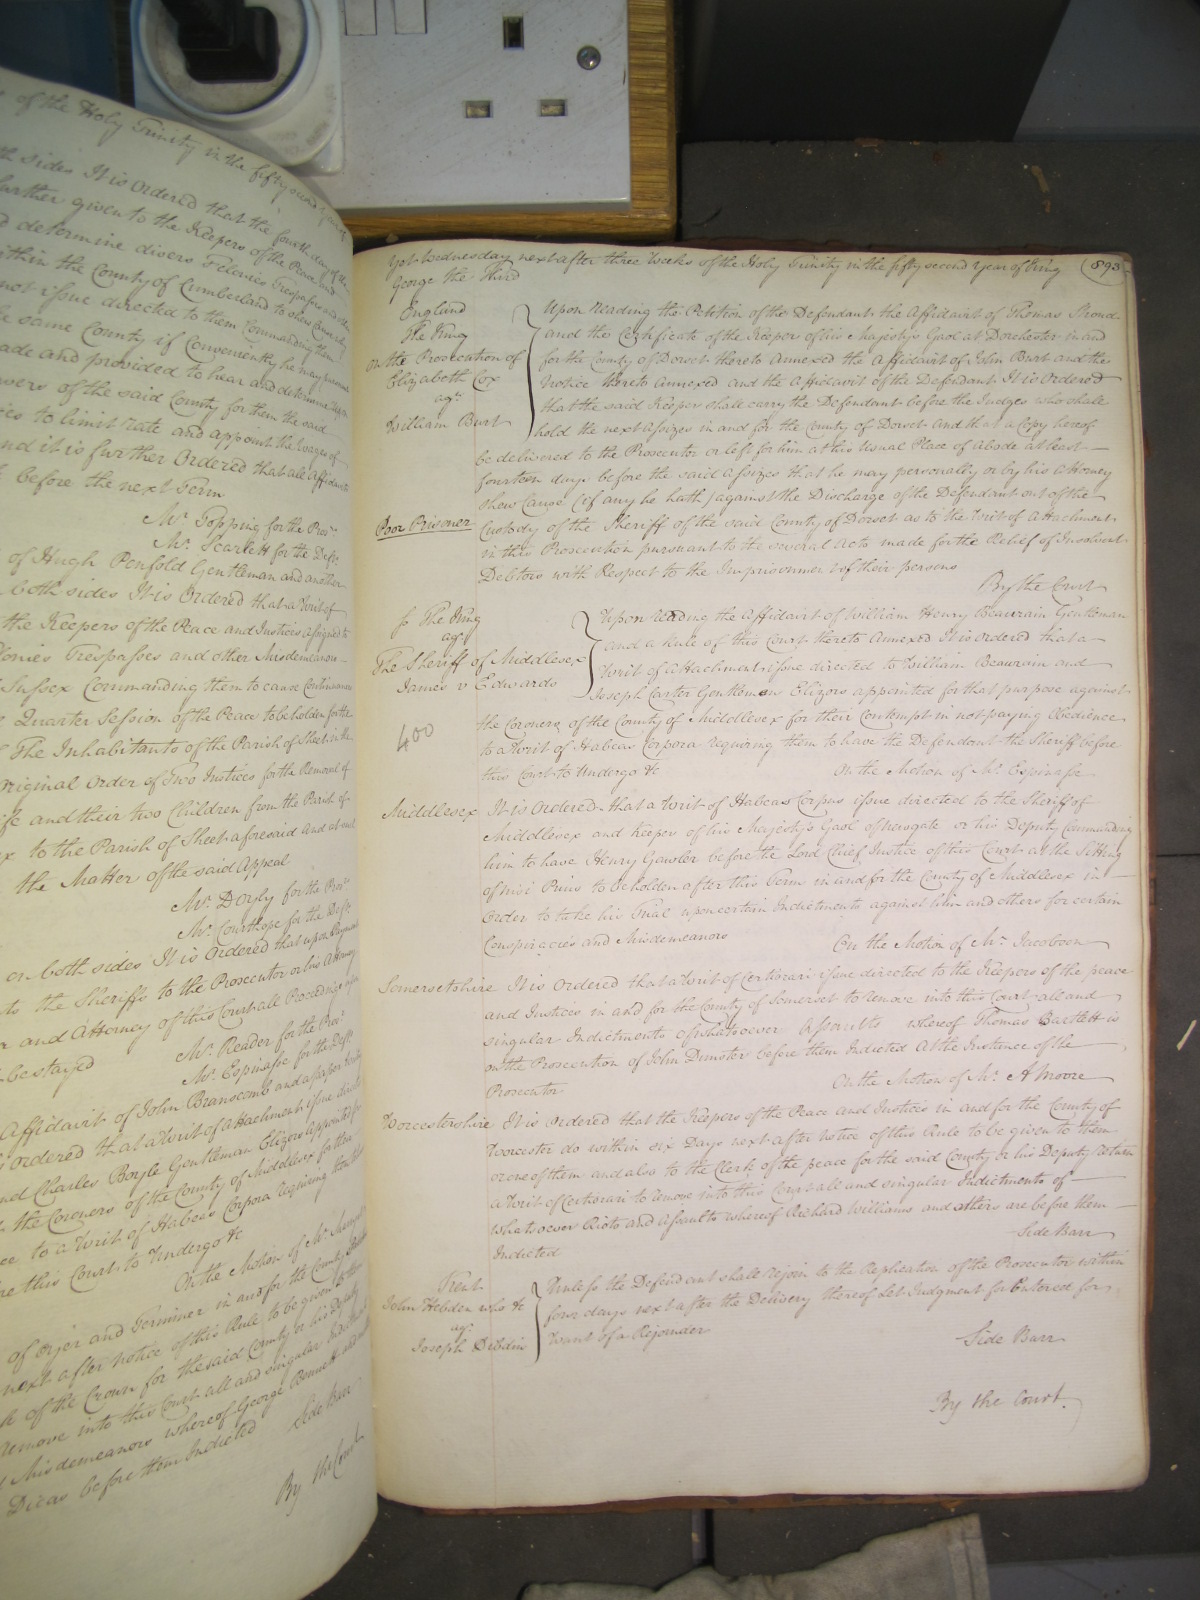 of the Holy Trinity in the fifty second year
th sides It is Ordered that the fourth day of
further given to the Keepers of the Peace and
d determine divers Felonies Trespasses and
ithin the County of Cumberland to shew Cause why
not issue directed to them Commanding them
same County if Conveniently he may
ade and provided to hear and determine
wers of the said County for them the said
ces to limit rate and appoint the Wages of
nd it is further Ordered that all Affidavits
before the next Term
Mr. Topping for the Pros.
Mr. Scarlett for the Deft.
of Hugh Penfold Gentleman and another
both sides It is Ordered that a Writ of
the Keepers of the Peace and Justices assigned to
lonies Trespasses and other Misdemeanors
Sussex Commanding them to cause Continuances
Quarter Session of the Peace to be holden for the
The Inhabitants of the Parish of Sheet in the
Original Order of Two Justices for the Removal of
ife and their two Children from the Parish of
ex to the Parish of Sheet aforesaid And at
the Matter of the said Appeal
Mr. D'Oyly for the Pros.
Mr. Courthope for the Deft.
on both sides It is Ordered that upon Payment
ts to the Sheriffs to the Prosecutor or his Attorney
r and Attorney of this Court all Proceedings
be stayed
Mr. Reader for the Pros.
Mr. Espinasse for the Deft.
Affidavit of John Branscomb and a
Ordered that a Writ of Attachment issue directed
nd Charles Boyle Gentleman Elizors Appointed for
the Coroners of the County of Middlesex for their
ce to a Writ of Habeas Corpora requiring them
re this Court to Undergo &c
On the Motion of Mr.
of Oyer and Terminer in and for the County
next after notice of this Rule to be given
k of the Crown for the said County or his Deputy
remove into this Court all and singular Indictments
Misdemeanors whereof George Bennett and
Dicas before them Indicted
Side Bar
By the Court
Yet Wednesday next after three Weeks of the Holy Trinity in the fifty second Year of King
George the Third
893
England
The King
on the Prosecution of
Elizabeth Cox
agt.
William Burt
Upon reading the Petition of the Defendant the Affidavit of Thomas Stroud
and the Certificate of the Keeper of his Majestys Gaol at Dorchester in and
for the County of Dorset thereto Annexed the Affidavit of John Burt and the
Notice thereto Annexed and the Affidavit of the Defendant It is Ordered
that the said Keeper shall carry the Defendant before the Judges who shall
hold the next Assizes in and for the County of Dorset And that a Copy hereof
be delivered to the Prosecutor or left for him at his Usual Place of Abode at least
fourteen days before the said Assizes that he may personally or by his Attorney
shew Cause (if any he hath) against the Discharge of the Defendant out of the
Poor Prisoner
Custody of the Sheriff of the said County of Dorset as to the Writ of Attachment
in this Prosecution pursuant to the several Acts made for the Relief of Insolvent
Debtors with Respect to the Imprisonment of their persons
By the Court
The King
agt.
The Sheriff of Middlesex
James v Edwards
400
Upon reading the Affidavit of William Henry Beaurain Gentleman
and a Rule of this Court thereto Annexed It is Ordered that a
Writ of Attachment issue directed to William Beaurain and
Joseph Carter Gentlemen Elizors appointed for that purpose against
the Coroners of the County of Middlesex for their Contempt in not paying Obedience
to a Writ of Habeas Corpora requiring them to have the Defendant the Sheriff before
this Court to Undergo &c
On the Motion of Mr. Espinasse
Middlesex It is Ordered that a Writ of Habeas Corpus issue directed to the Sheriff of
Middlesex and Keeper of his Majestys Gaol of Newgate or his Deputy Commanding
him to have Henry Gawler before the Lord Chief Justice of this Court at the Sitting
of Nisi Prius to be holden after this Term in and for the County of Middlesex in
Order to take his Trial upon certain Indictments against him and others for certain
Conspiracies and Misdemeanors
On the Motion of Mr. Jacobson
Somersetshire It is Ordered that a Writ of Certiorari issue directed to the Keepers of the peace
and Justices in and for the County of Somerset to remove into this Court all and
singular Indictments of whatsoever Assaults whereof Thomas Bartlett is
on the Prosecution of John Dimster before them Indicted At the Instance of the
Prosecutor
On the Motion of Mr. A Moore
Worcestershire It is Ordered that the Keepers of the Peace and Justices in and for the County of
Worcester do within six Days next after notice of this Rule to be given to them
or one of them and also to the Clerk of the peace for the said County or his Deputy return
a Writ of Certiorari to remove into this Court all and singular Indictments of
whatsoever Riots and Assaults whereof Richard Williams and others are before them
Indicted
Side Barr
Trent
John Hebden who &c
agt.
Joseph Dibdin
Unless the Defendant shall rejoin to the Replication of the Prosecutor within
four days next after the Delivery thereof Let Judgment be Entered for
Want of a Rejoinder
Side Barr
By the Court.